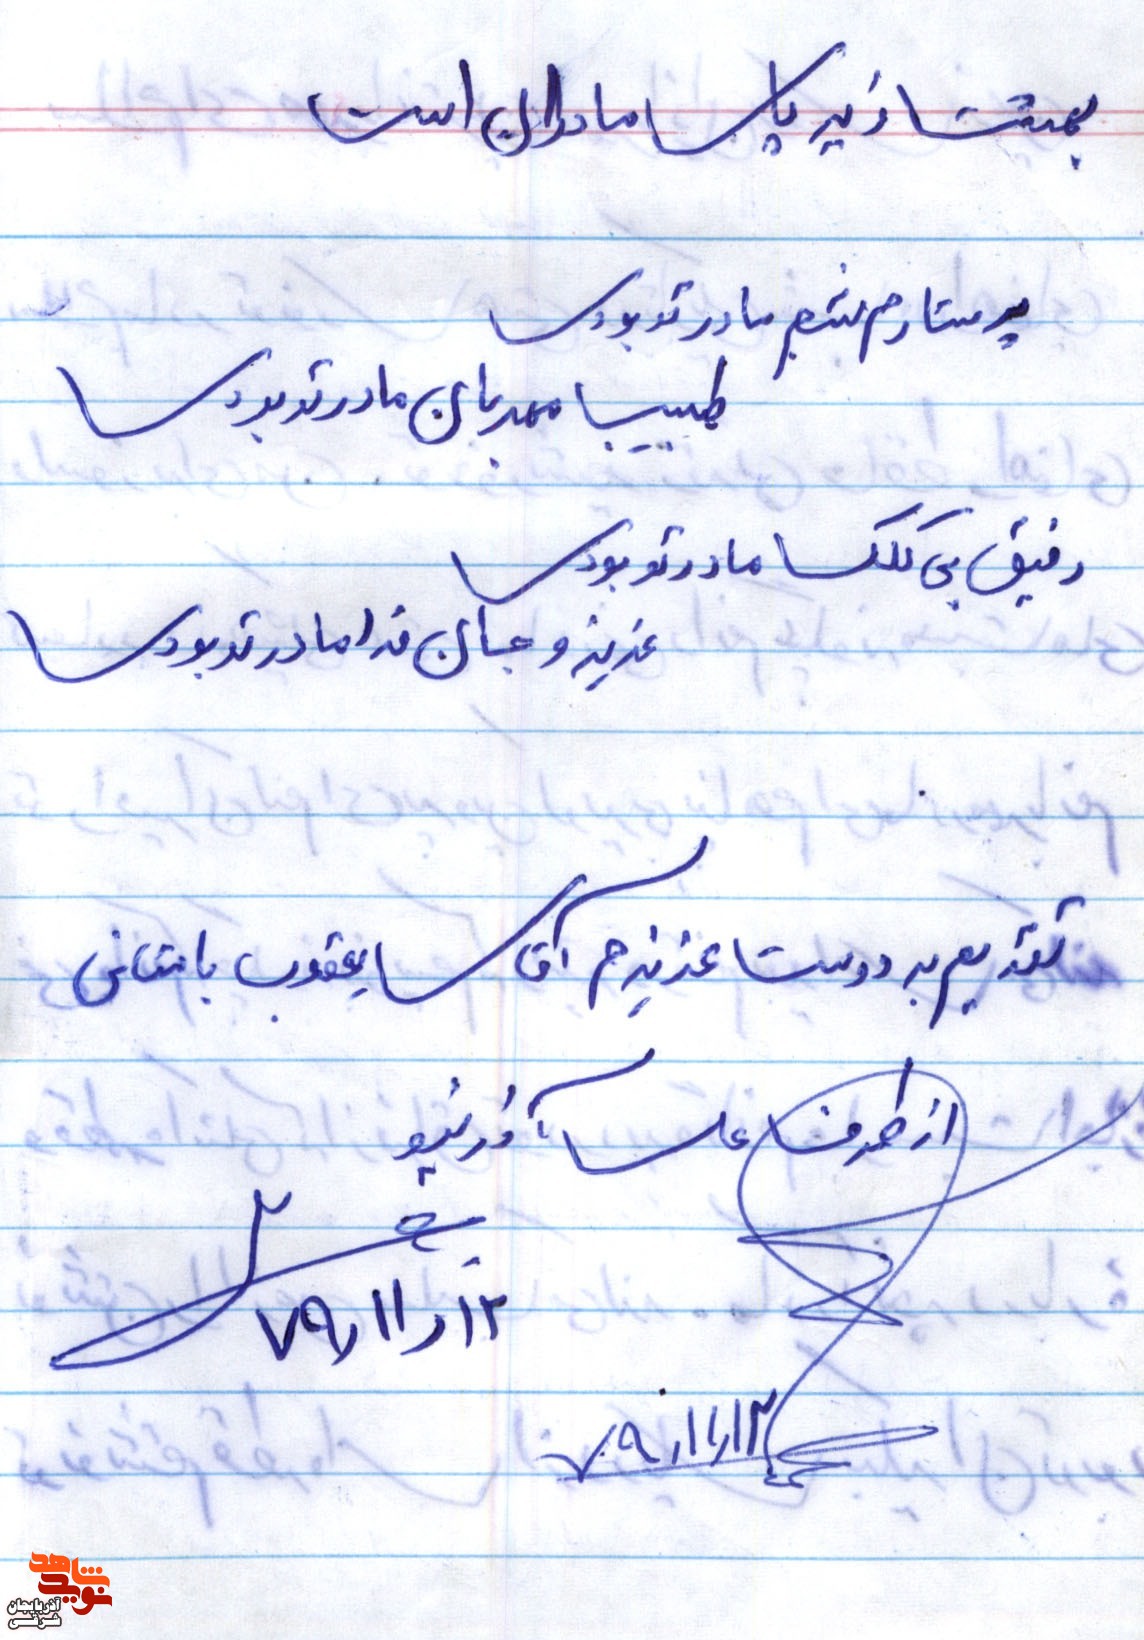 بهشت از زیر پای مادران است
پرستارم شبم مادر تو بودی
طبیب مهربان مادر تو بودی
رفیق بی کلک مادر تو بودی
عزیز و جان فدا مادر تو بودی
تقدیم به دوست عزیزم آقای یعقوب باستانی
از طرف علی آذرنیو
۷۹/۱۱/۱۲
۷۹/۱۱/۱۲
نوید شاهد
آذربایجان شرقی